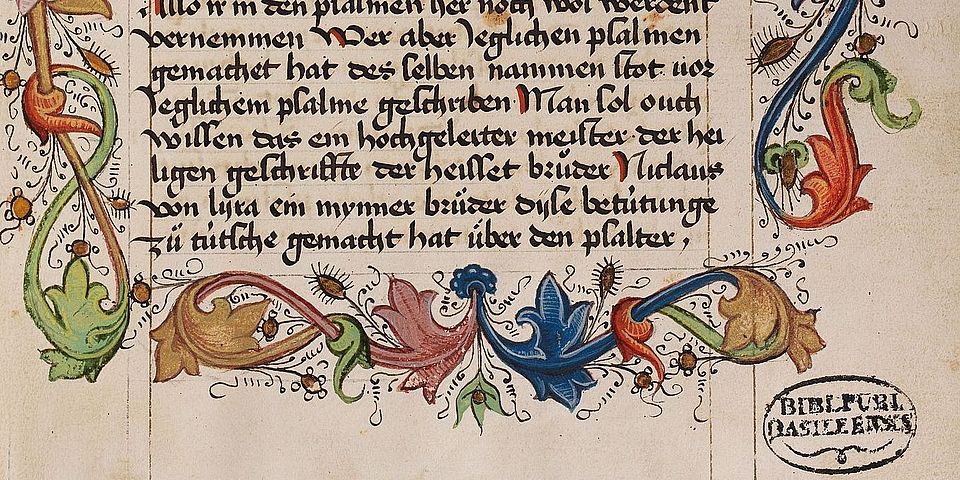 Also ir in den psalmen her noch wol werdent
vernemmen Wer aber Jeglichen psalmen
gemachet hat des selben nammen stot vor
Jeglichem psalme geschriben Man sol ouch
wissen das ein hochgelerter meister der hei
ligen geschrifft der heisset brůder Niclaus
von lyra ein mynner brůder dise betútunge
Zů tútsche gemacht hat über den psalter,
BIBL. PUBL
BASILEENSIS